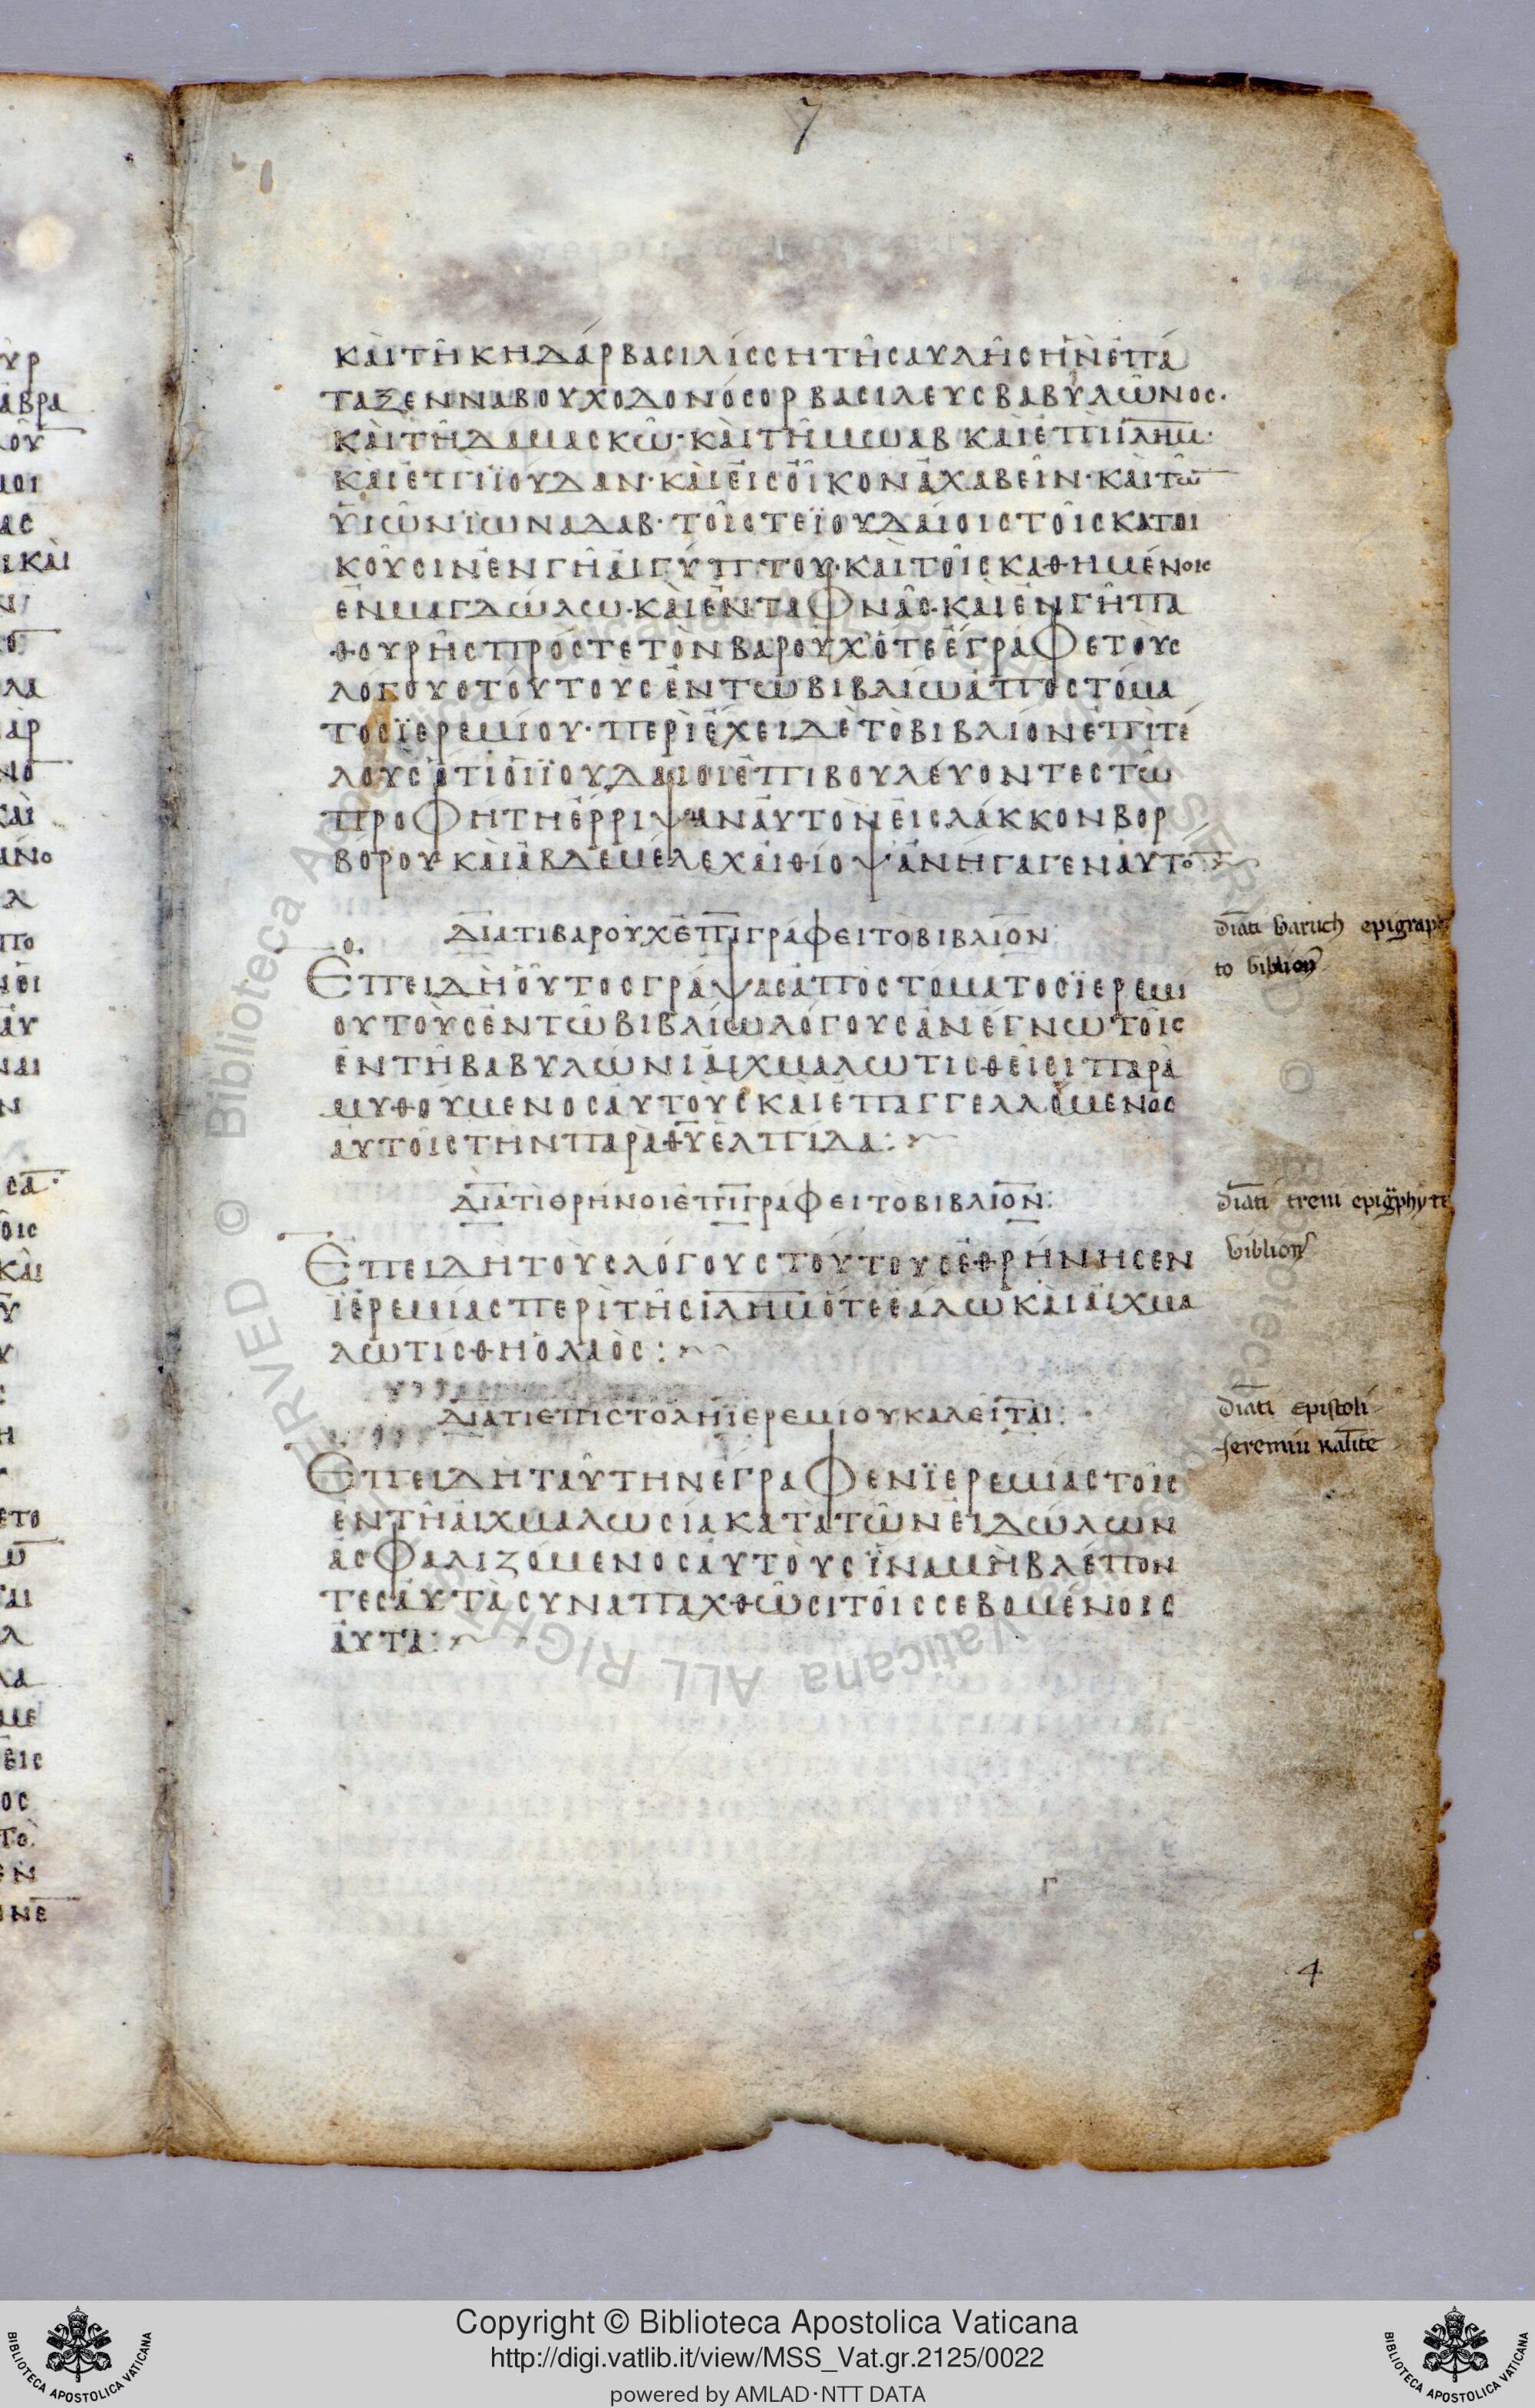 7
ΚΑΙΤΗΚΗΔΑΡΒΑCΙΛΙCCΗΤΗCΑΥΛΗCΗΝΕΠΑ
ΤΑΞΕΝΝΑΒΟΥΧΟΔΟΝΟCΟΡΒΑCΙΛΕΥCΒΑΒΥΛΩΝΟC·
ΚΑΙΤΗΔΑΜΑCΚΩ·ΚΑΙΤΗΜΩΑΒΚΑΙΕΠΙΙΛΗΜ·
ΚΑΙΕΠΙΪΟΥΔΑΝ·ΚΑΙΕΙCΟΙΚΟΝΑΧΑΒΕΙΝ·ΚΑΙΤΩ̅
ΥΙΩΝΪΩΝΑΔΑΒ·ΤΟΙCΤΕΪΟΥΔΑΙΟΙCΤΟΙCΚΑΤΟΙ
ΚΟΥCΙΝΕΝΓΗΑΙΓΥΠΤΟΥ·ΚΑΙΤΟΙCΚΑΘΗΜΕΝΟΙC
ΕΝΜΑΓΔΩΛΩ·ΚΑΙΕΝΤΑΦΝΑC·ΚΑΙΕΝΓΗΠΑ
ΘΟΥΡΗCΠΡΟCΤΕΤΟΝΒΑΡΟΥΧΟΤΕΕΓΡΑΦΕΤΟΥC
ΛΟΓΟΥCΤΟΥΤΟΥCΕΝΤΩΒΙΒΛΙΩΑΠΟCΤΟΜΑ
ΤΟCΪΕΡΕΜΙΟΥ·ΠΕΡΙΕΧΕΙΔΕΤΟΒΙΒΛΙΟΝΕΠΙΤΕ
ΛΟΥCΟΤΙΟΙΪΟΥΔΑΙΟΙΕΠΙΒΟΥΛΕΥΟΝΤΕCΤΩ
ΠΡΟΦΗΤΗΕΡΡΙΨΑΝΑΥΤΟΝΕΙCΛΑΚΚΟΝΒΟΡ
ΒΟΡΟΥΚΑΙΑΒΔΕΜΕΛΕΧΑΙΘΙΟΨΑΝΗΓΑΓΕΝΑΥΤΟ̅
ΔΙΑΤΙΒΑΡΟΥΧΕΠΙΓΡΑΦΕΙΤΟΒΙΒΛΙΟΝ
diati baruch epigraph
to biblion
ΕΠΕΙΔΗΟΥΤΟCΓΡΑΨΑCΑΠΟCΤΟΜΑΤΟCΪΕΡΕΜΙ
ΟΥΤΟΥCΕΝΤΩΒΙΒΛΙΩΛΟΓΟΥCΑΝΕΓΝΩΤΟΙC
ΕΝΤΗΒΑΒΥΛΩΝΙΑΙΧΜΑΛΩΤΙCΘΕΙCΙΠΑΡΑ
ΜΥΘΟΥΜΕΝΟCΑΥΤΟΥCΚΑΙΕΠΑΓΓΕΛΛΟΜΕΝΟC
ΑΥΤΟΙCΤΗΝΠΑΡΑΘ̅Υ̅ΕΛΠΙΔΑ:
ΔΙΑΤΙΘΡΗΝΟΙΕΠΙΓΡΑΦΕΙΤΟΒΙΒΛΙΟΝ:
diati treni epigphy to
biblion
ΕΠΕΙΔΗΤΟΥCΛΟΓΟΥCΤΟΥΤΟΥCΕΘΡΗΝΗCΕΝ
ΪΕΡΕΜΙΑCΠΕΡΙΤΗCΙΛΗΜΟΤΕΕΑΛΩΚΑΙΑΙΧΜΑ
ΛΩΤΙCΘΗΟΛΑΟC:
ΔΙΑΤΙΕΠΙCΤΟΛΗΪΕΡΕΜΙΟΥΚΑΛΕΙΤΑΙ:
diati epistoli
Jeremiu kalite
ΕΠΕΙΔΗΤΑΥΤΗΝΕΓΡΑΦΕΝΪΕΡΕΜΙΑCΤΟΙC
ΕΝΤΗΑΙΧΜΑΛΩCΙΑΚΑΤΑΤΩΝΕΙΔΩΛΩΝ
ΑCΦΑΛΙΖΟΜΕΝΟCΑΥΤΟΥCΪΝΑΜΗΒΛΕΠΟΝ
ΤΕCΑΥΤΑCΥΝΑΠΑΧΘΩCΙΤΟΙCCΕΒΟΜΕΝΟΙC
ΑΥΤΑ:
4
Copyright © Biblioteca Apostolica Vaticana
http://digi.vatlib.it/view/MSS_Vat.gr.2125/0022
powered by AMLAD·NTT DATA